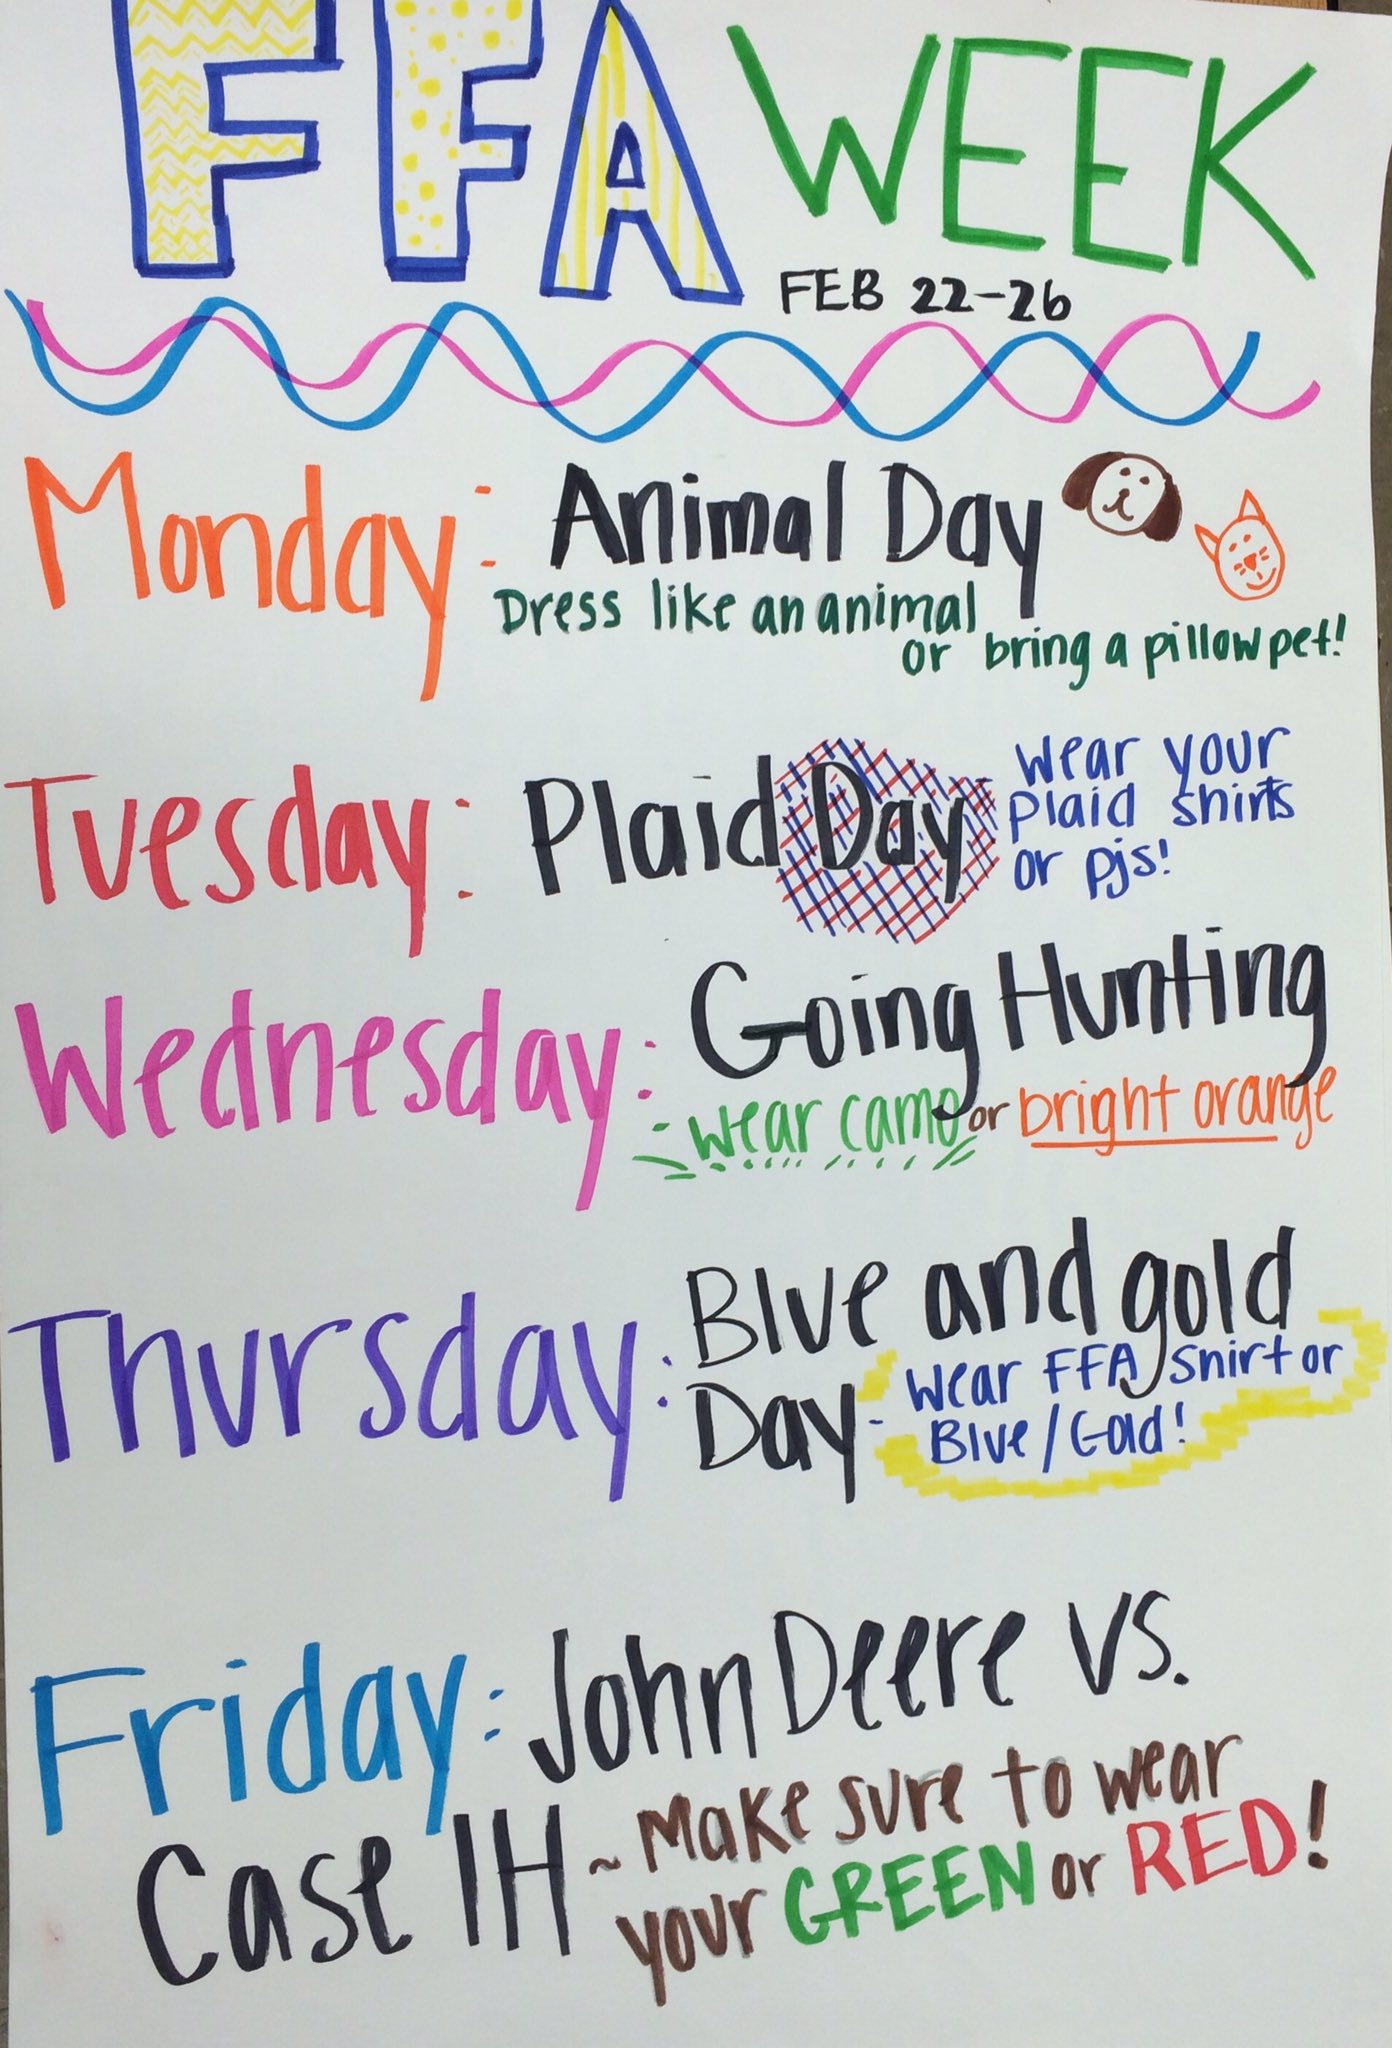 FFA WEEK
FEB 22-26
Monday: Animal Day
Dress like an animal
or bring a pillow pet!
Tuesday: Plaid Day - Wear your
plaid shirts
or pjs!
Wednesday: Going Hunting
- wear camo or bright orange
Thursday: Blue and gold
Day - Wear FFA shirt or
Blue/Gold!
Friday: John Deere vs.
Case IH ~ Make sure to wear
your GREEN or RED!